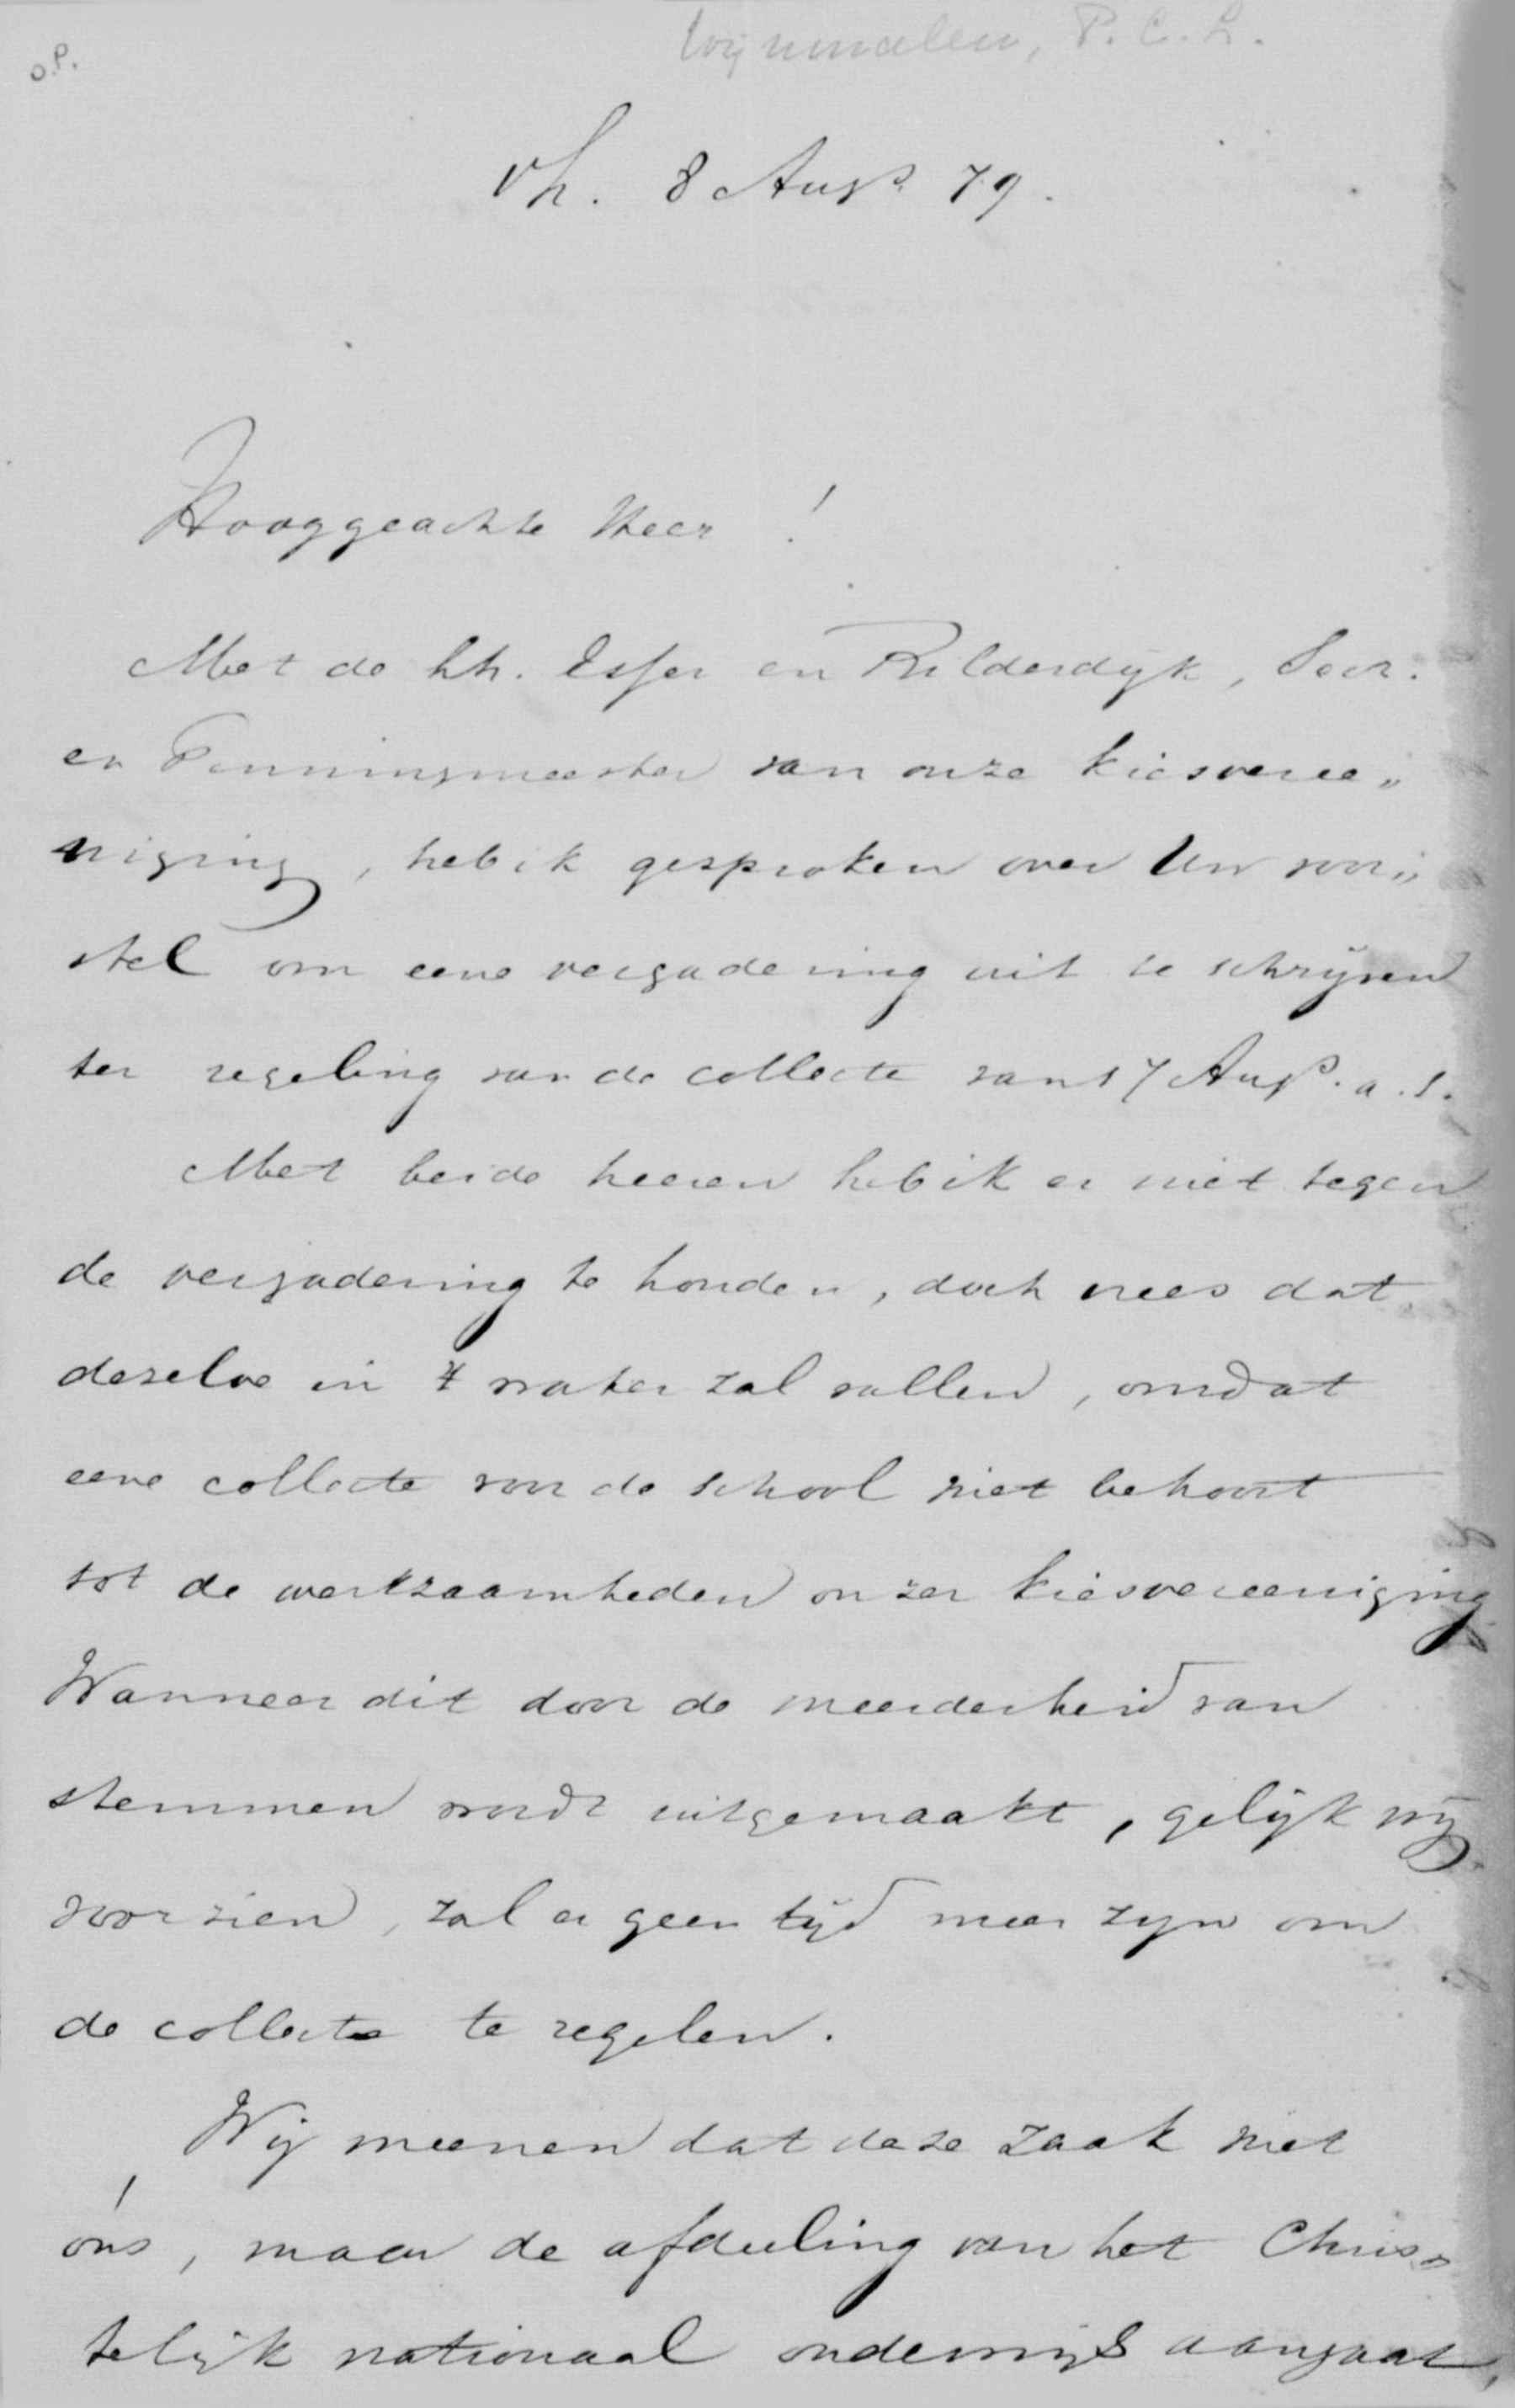 Wijnmalen, P.C.L.
o.P.
'sh. 8 Augs. 79.
Hooggeachte Heer !
Met de hh. Esser en Bilderdijk, Secr.
en Penningmeester van onze kiesveree„
niging, heb ik gesproken over Uw voor„
stel om eene vergadering uit te schrijven
ter regeling van de collecte van 17 Augs. a.s.
Met beide heeren heb ik er niet tegen
de vergadering te houden, doch vrees dat
dezelve in 't water zal vallen, omdat
eene collecte voor de school niet behoort
tot de werkzaamheden onzer kiesvereeniging
Wanneer dit door de meerderheid van
stemmen wordt uitgemaakt, gelijk wij
voorzien, zal er geen tijd meer zijn om
de collecte te regelen.
Wij meenen dat deze zaak niet
óns, maar de afdeeling van het Chris„
telijk nationaal onderwijs aangaat,